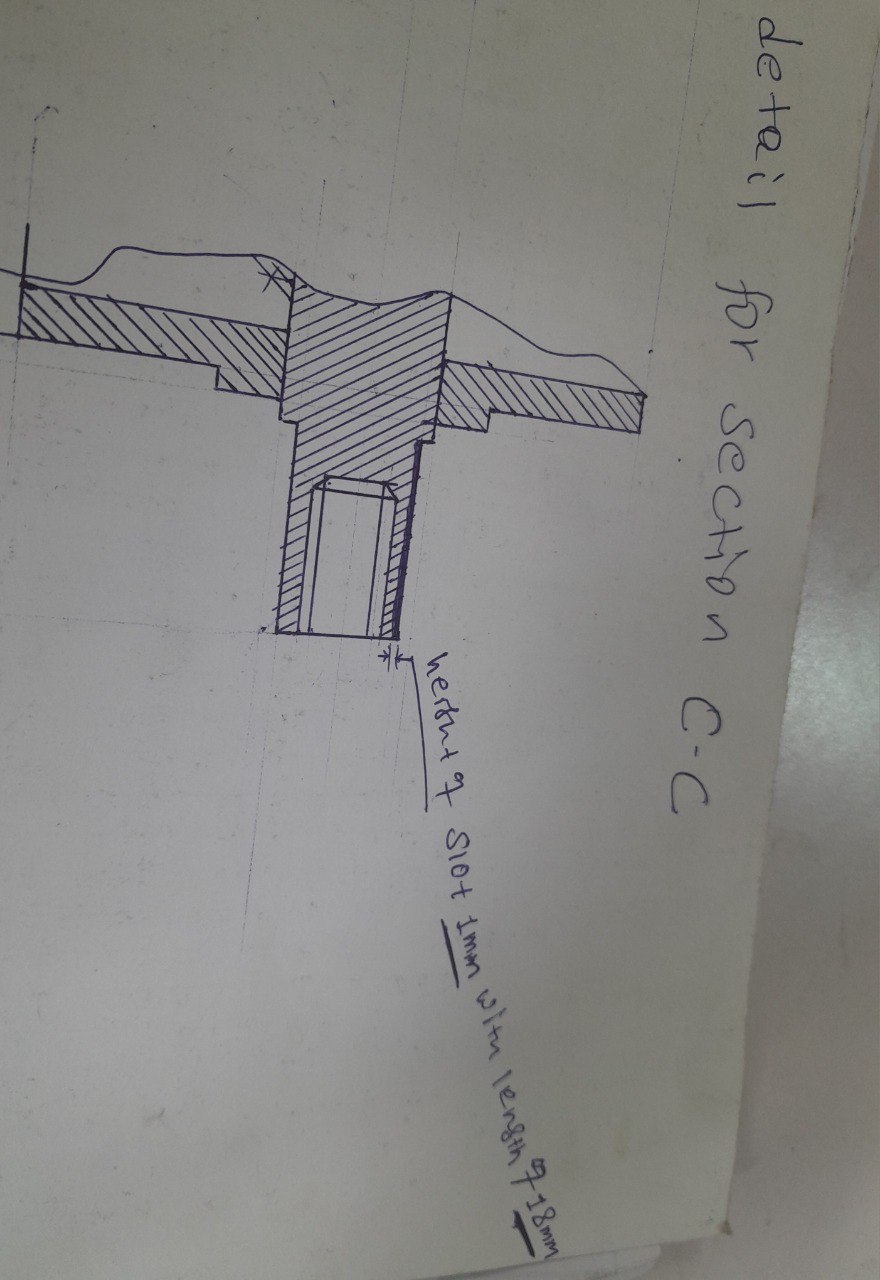 detail for section C-C
height of slot 1mm with length of 18mm